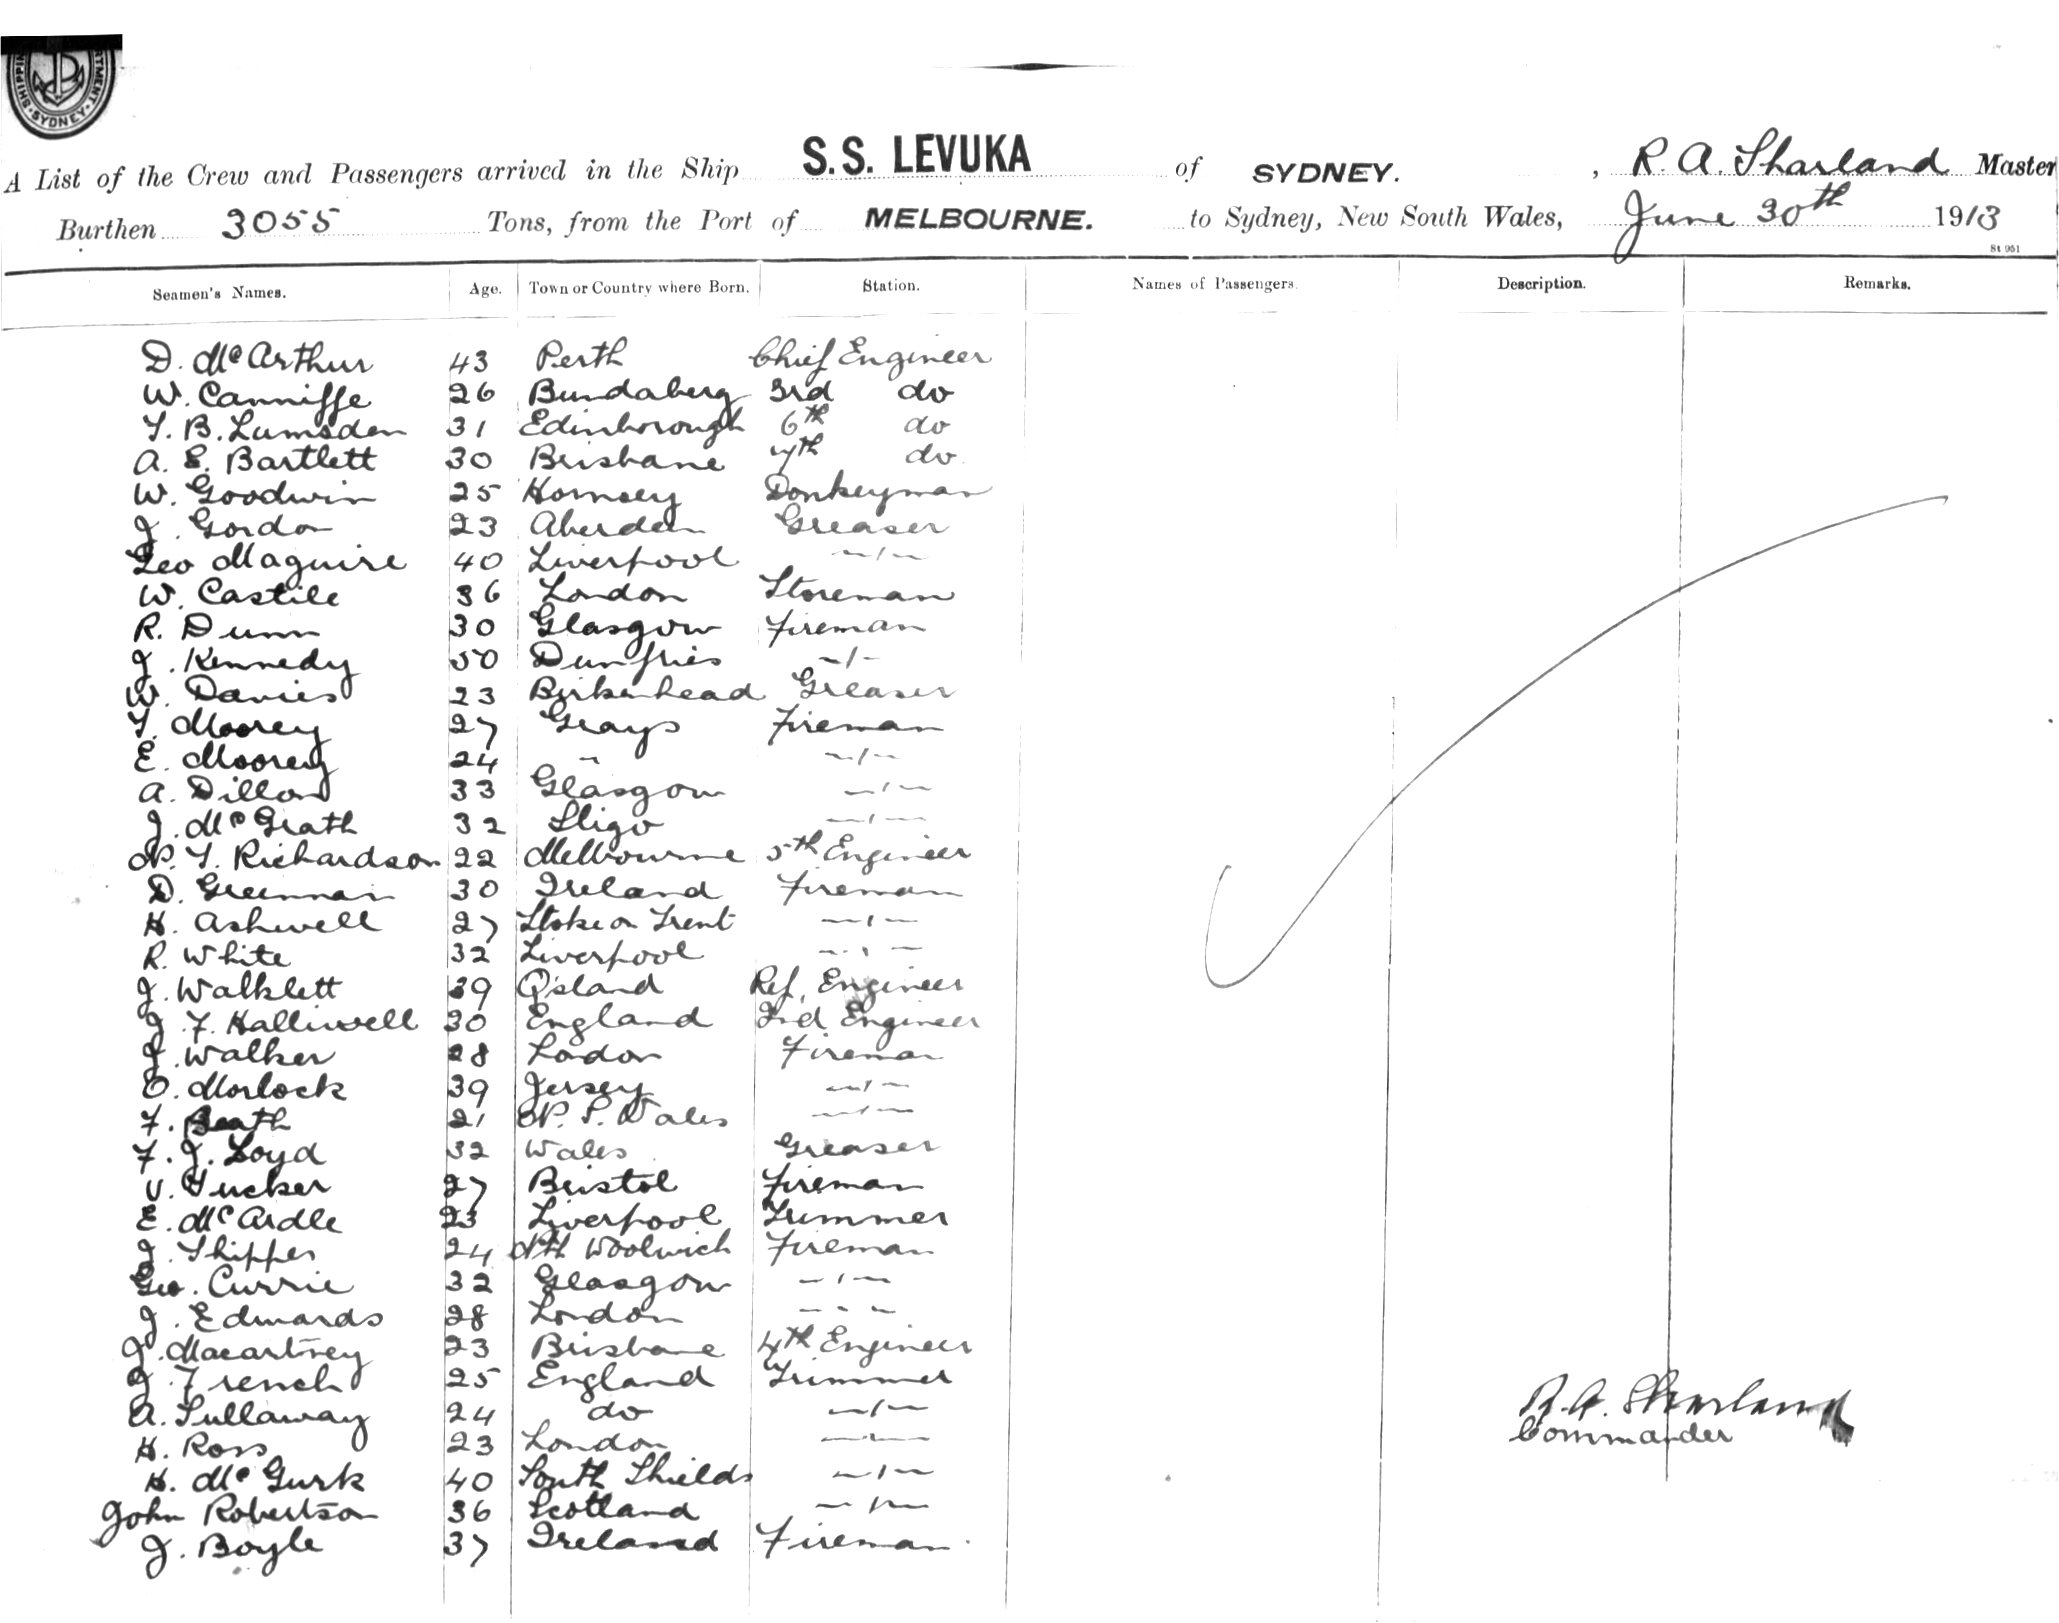 SHIPPIN RTMENT SYDNEY
A List of the Crew and Passengers arrived in the Ship S.S. LEVUKA of SYDNEY. , R. A. Sharland Master
Burthen 3055 Tons, from the Port of MELBOURNE. to Sydney, New South Wales, June 30th 1913
St 951
Seamen's Names. Age. Town or Country where Born. Station. Names of Passengers. Description. Remarks.
D. McArthur 43 Perth Chief Engineer
W. Canniffe 26 Bundaberg 3rd do
T. B. Lumsden 31 Edinborough 6th do
A. E. Bartlett 30 Brisbane 7th do
W. Goodwin 25 Hornsey Donkeyman
J. Gordon 23 Aberdeen Greaser
Geo Maguire 40 Liverpool —"—
W. Castile 36 London Storeman
R. Dunn 30 Glasgow Fireman
J. Kennedy 50 Dumfries —"—
W. Davies 23 Birkenhead Greaser
T. Moorey 27 Grays Fireman
E. Moorey 24 " —"—
A. Dillon 33 Glasgow —"—
J. McGrath 32 Sligo —"—
N. T. Richardson 22 Melbourne 5th Engineer
D. Greennan 30 Ireland Fireman
H. Ashwell 27 Stoke on Trent —"—
R. White 32 Liverpool —"—
J. Walklett 39 Q'sland Ref. Engineer
J. F. Halliwell 30 England 2nd Engineer
J. Walker 28 London Fireman
O. Morlock 39 Jersey —"—
F. Beath 21 N. S. Wales —"—
F. J. Loyd 32 Wales Greaser
V. Tucker 27 Bristol Fireman
E. McArdle 23 Liverpool Trimmer
J. Skipper 24 Nth Woolwich Fireman
Geo. Currie 32 Glasgow —"—
J. Edwards 28 London —"—
J. Macartney 23 Brisbane 4th Engineer
J. French 25 England Trimmer
A. Tullaway 24 do —"—
H. Ross 23 London —"—
H. McGurk 40 South Shields —"—
John Robertson 36 Scotland —"—
J. Boyle 37 Ireland Fireman
R. A. Sharland
Commander